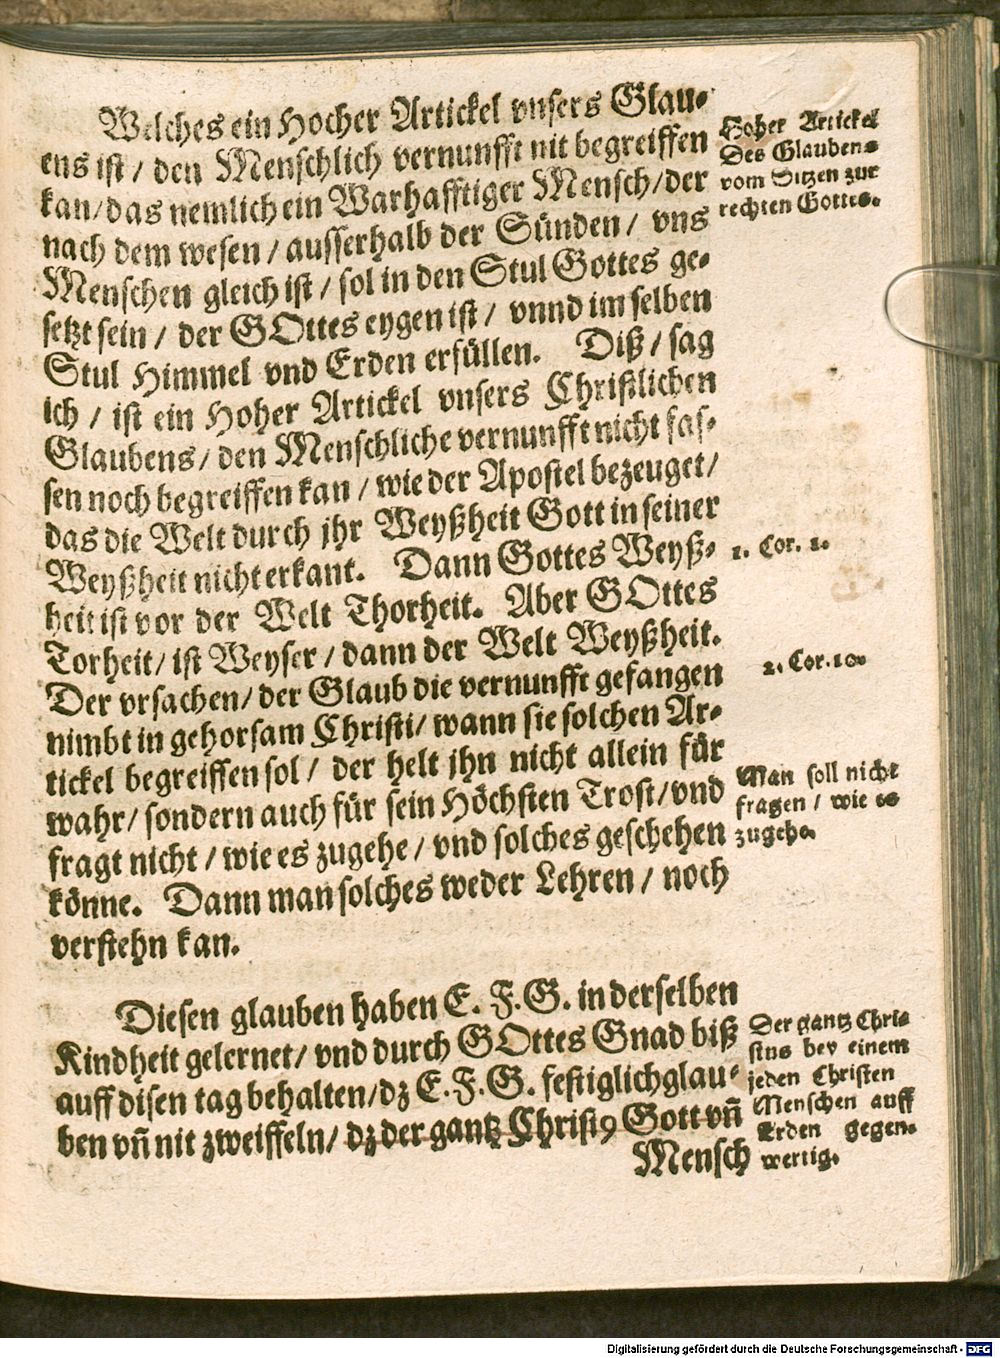 Welches ein Hocher Artickel vnsers Glau-
ens ist / den Menschlich vernunfft nit begreiffen
kan / das nemlich ein Warhafftiger Mensch / der
nach dem wesen / ausserhalb der Sünden / vns
Menschen gleich ist / sol in den Stul Gottes ge-
setzt sein / der GOttes eygen ist / vnnd im selben
Stul Himmel vnd Erden erfüllen. Diß / sag
ich / ist ein Hoher Artickel vnsers Christlichen
Glaubens / den Menschliche vernunfft nicht fas-
sen noch begreiffen kan / wie der Apostel bezeuget /
das die Welt durch jhr Weyßheit Gott in seiner
Weyßheit nicht erkant. Dann Gottes Weyß-
heit ist vor der Welt Thorheit. Aber GOttes
Torheit / ist Weyser / dann der Welt Weyßheit.
Der vrsachen / der Glaub die vernunfft gefangen
nimbt in gehorsam Christi / wann sie solchen Ar-
tickel begreiffen sol / der helt jhn nicht allein für
wahr / sondern auch für sein Höchsten Trost / vnd
fragt nicht / wie es zugehe / vnd solches geschehen
könne. Dann man solches weder Lehren / noch
verstehn kan.
Diesen glauben haben E. F. G. in derselben
Kindheit gelernet / vnd durch GOttes Gnad biß
auff disen tag behalten / dz E. F. G. festiglich glau-
ben vñ nit zweiffeln / dz der gantz Christꝰ Gott vñ
Mensch
Hoher Artickel
Des Glaubens
vom Sitzen zur
rechten Gottes.
1. Cor. 1.
2. Cor. 10.
Man soll nicht
fragen / wie es
zugehe.
Der gantz Chri-
stus bey einem
jeden Christen
Menschen auff
Erden gegen-
wertig.
Digitalisierung gefördert durch die Deutsche Forschungsgemeinschaft - DFG